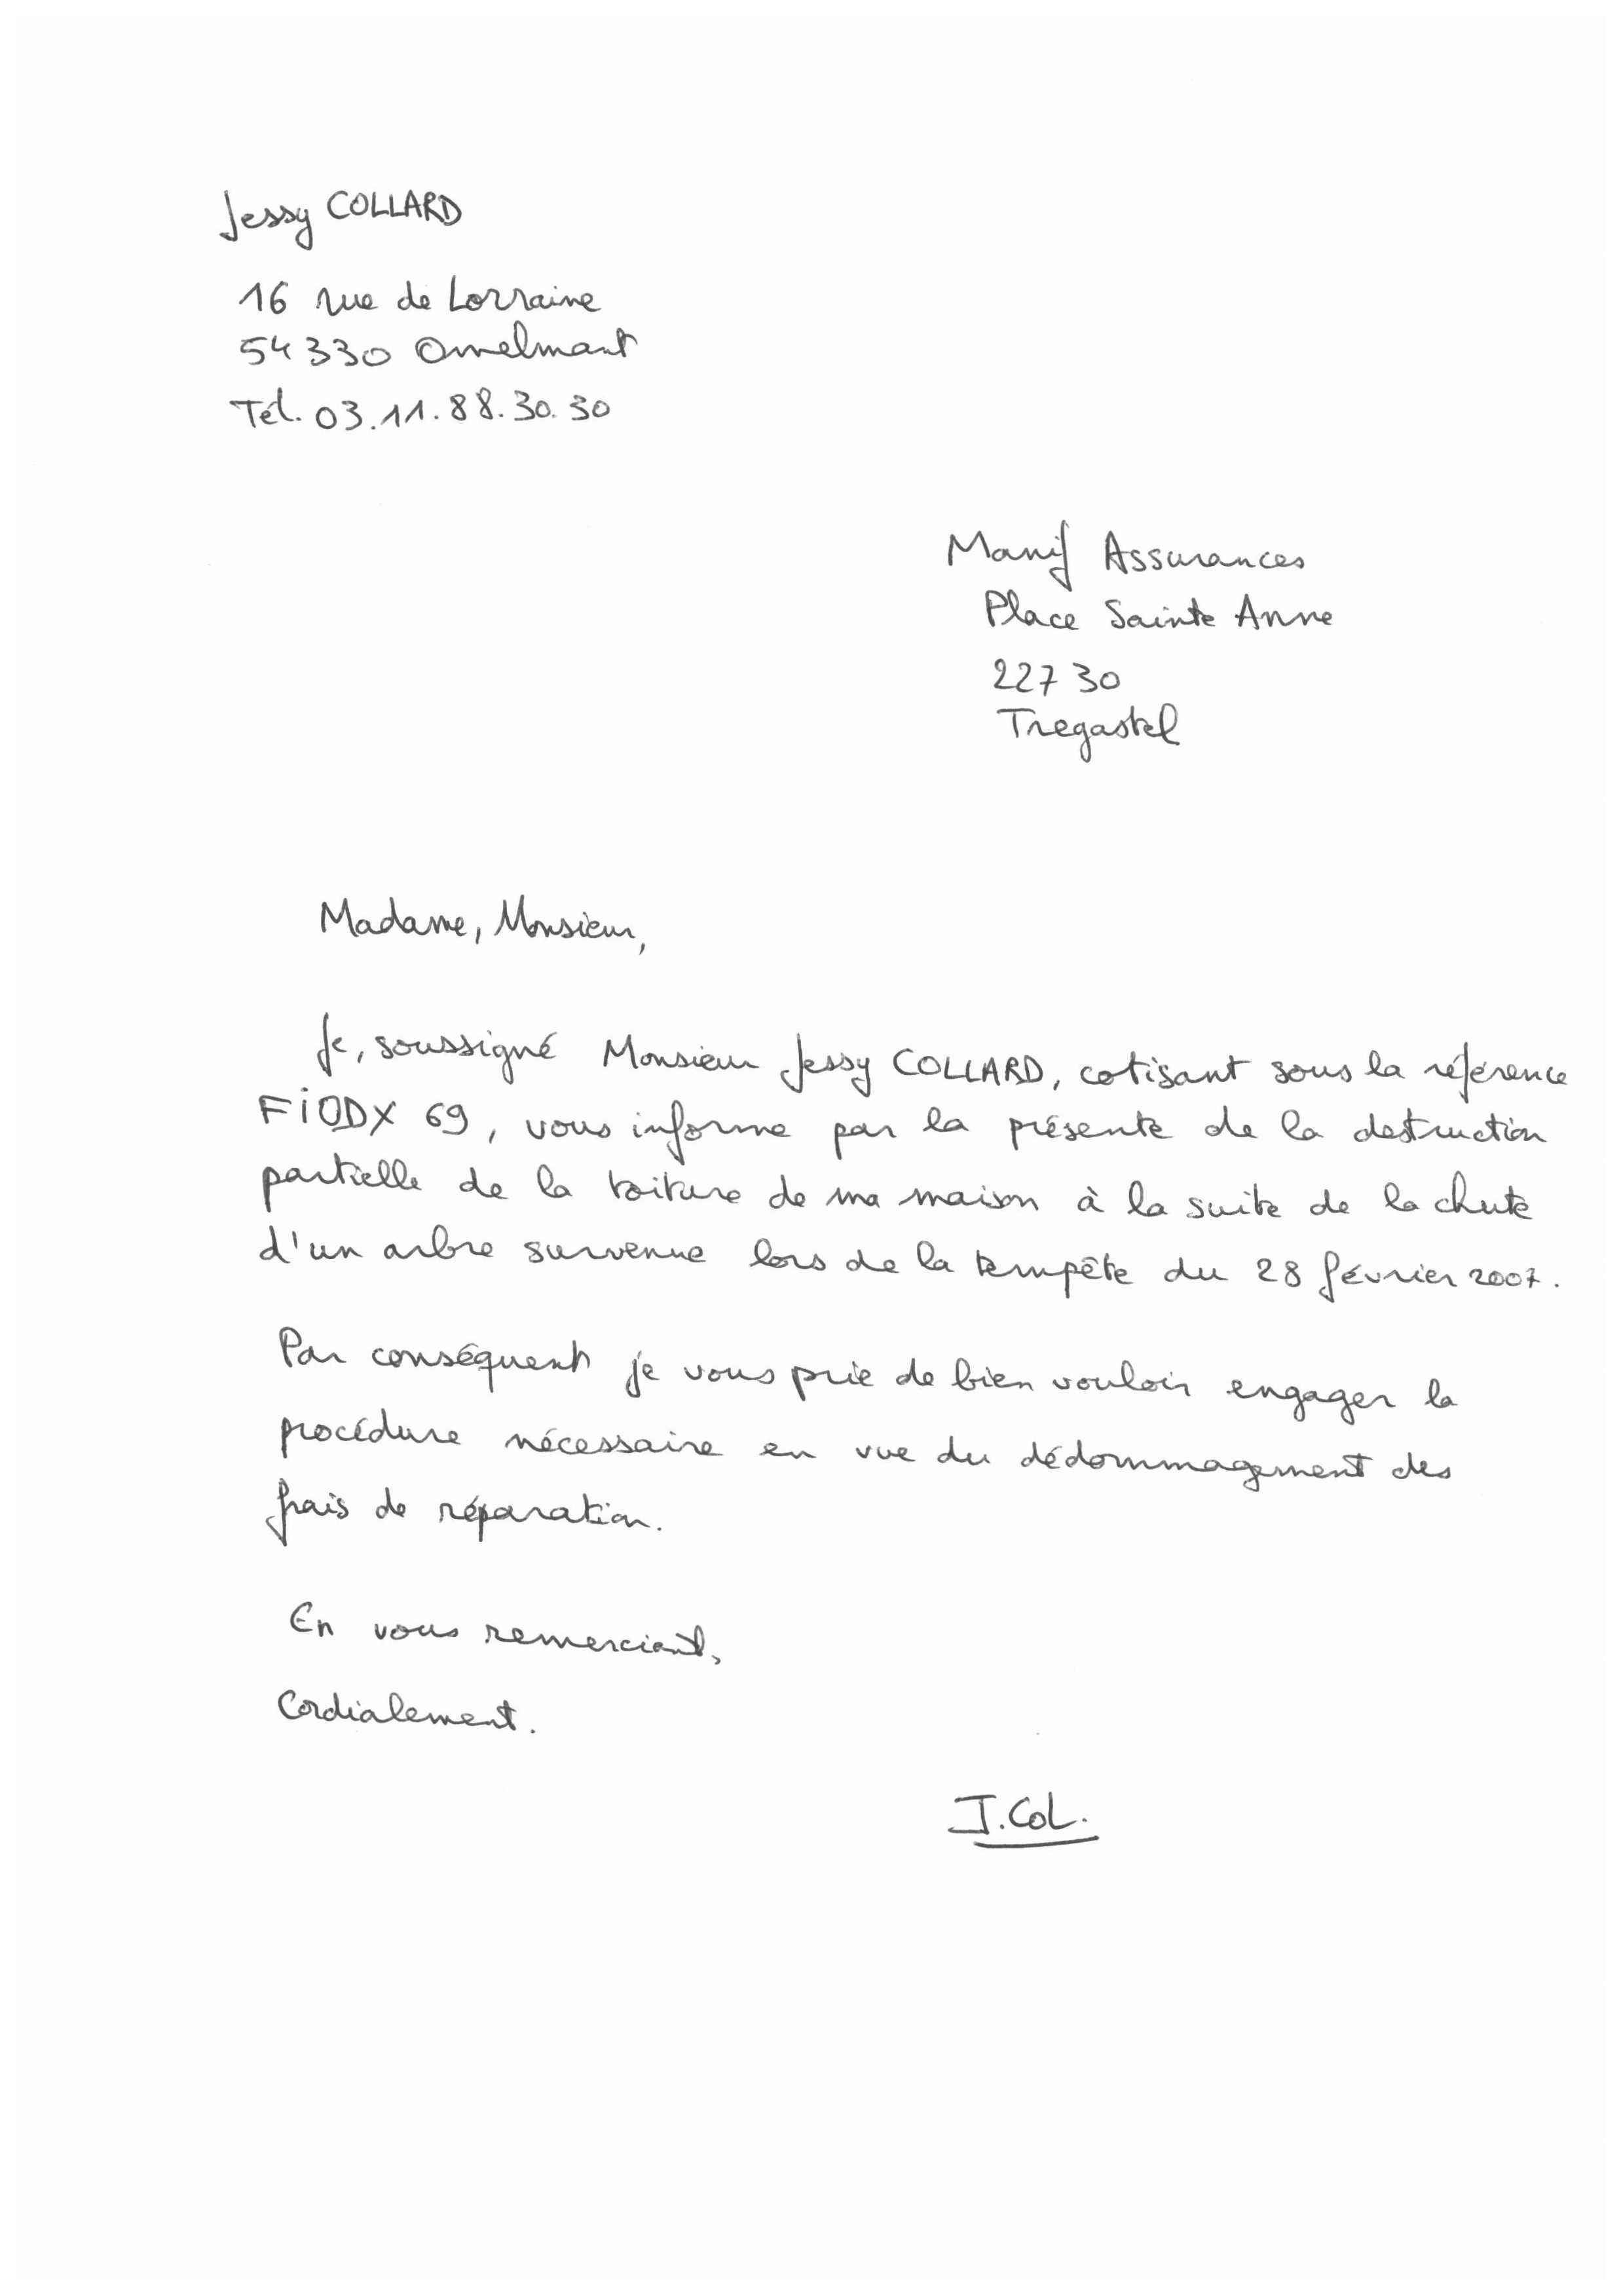 Jessy COLLARD
16 rue de Lorraine
54330 Omelmont
Tél. 03.11.88.30.30
Manif Assurances
Place Sainte Anne
22730
Tregastel
Madame, Monsieur,
Je, soussigné Monsieur Jessy COLLARD, cotisant sous la référence
FiODX 69, vous informe par la présente de la destruction
partielle de la toiture de ma maison à la suite de la chute
d'un arbre survenue lors de la tempête du 28 février 2007.
Par conséquent je vous prie de bien vouloir engager la
procédure nécessaire en vue du dédommagement des
frais de réparation.
En vous remerciant,
Cordialement.
J.CoL.